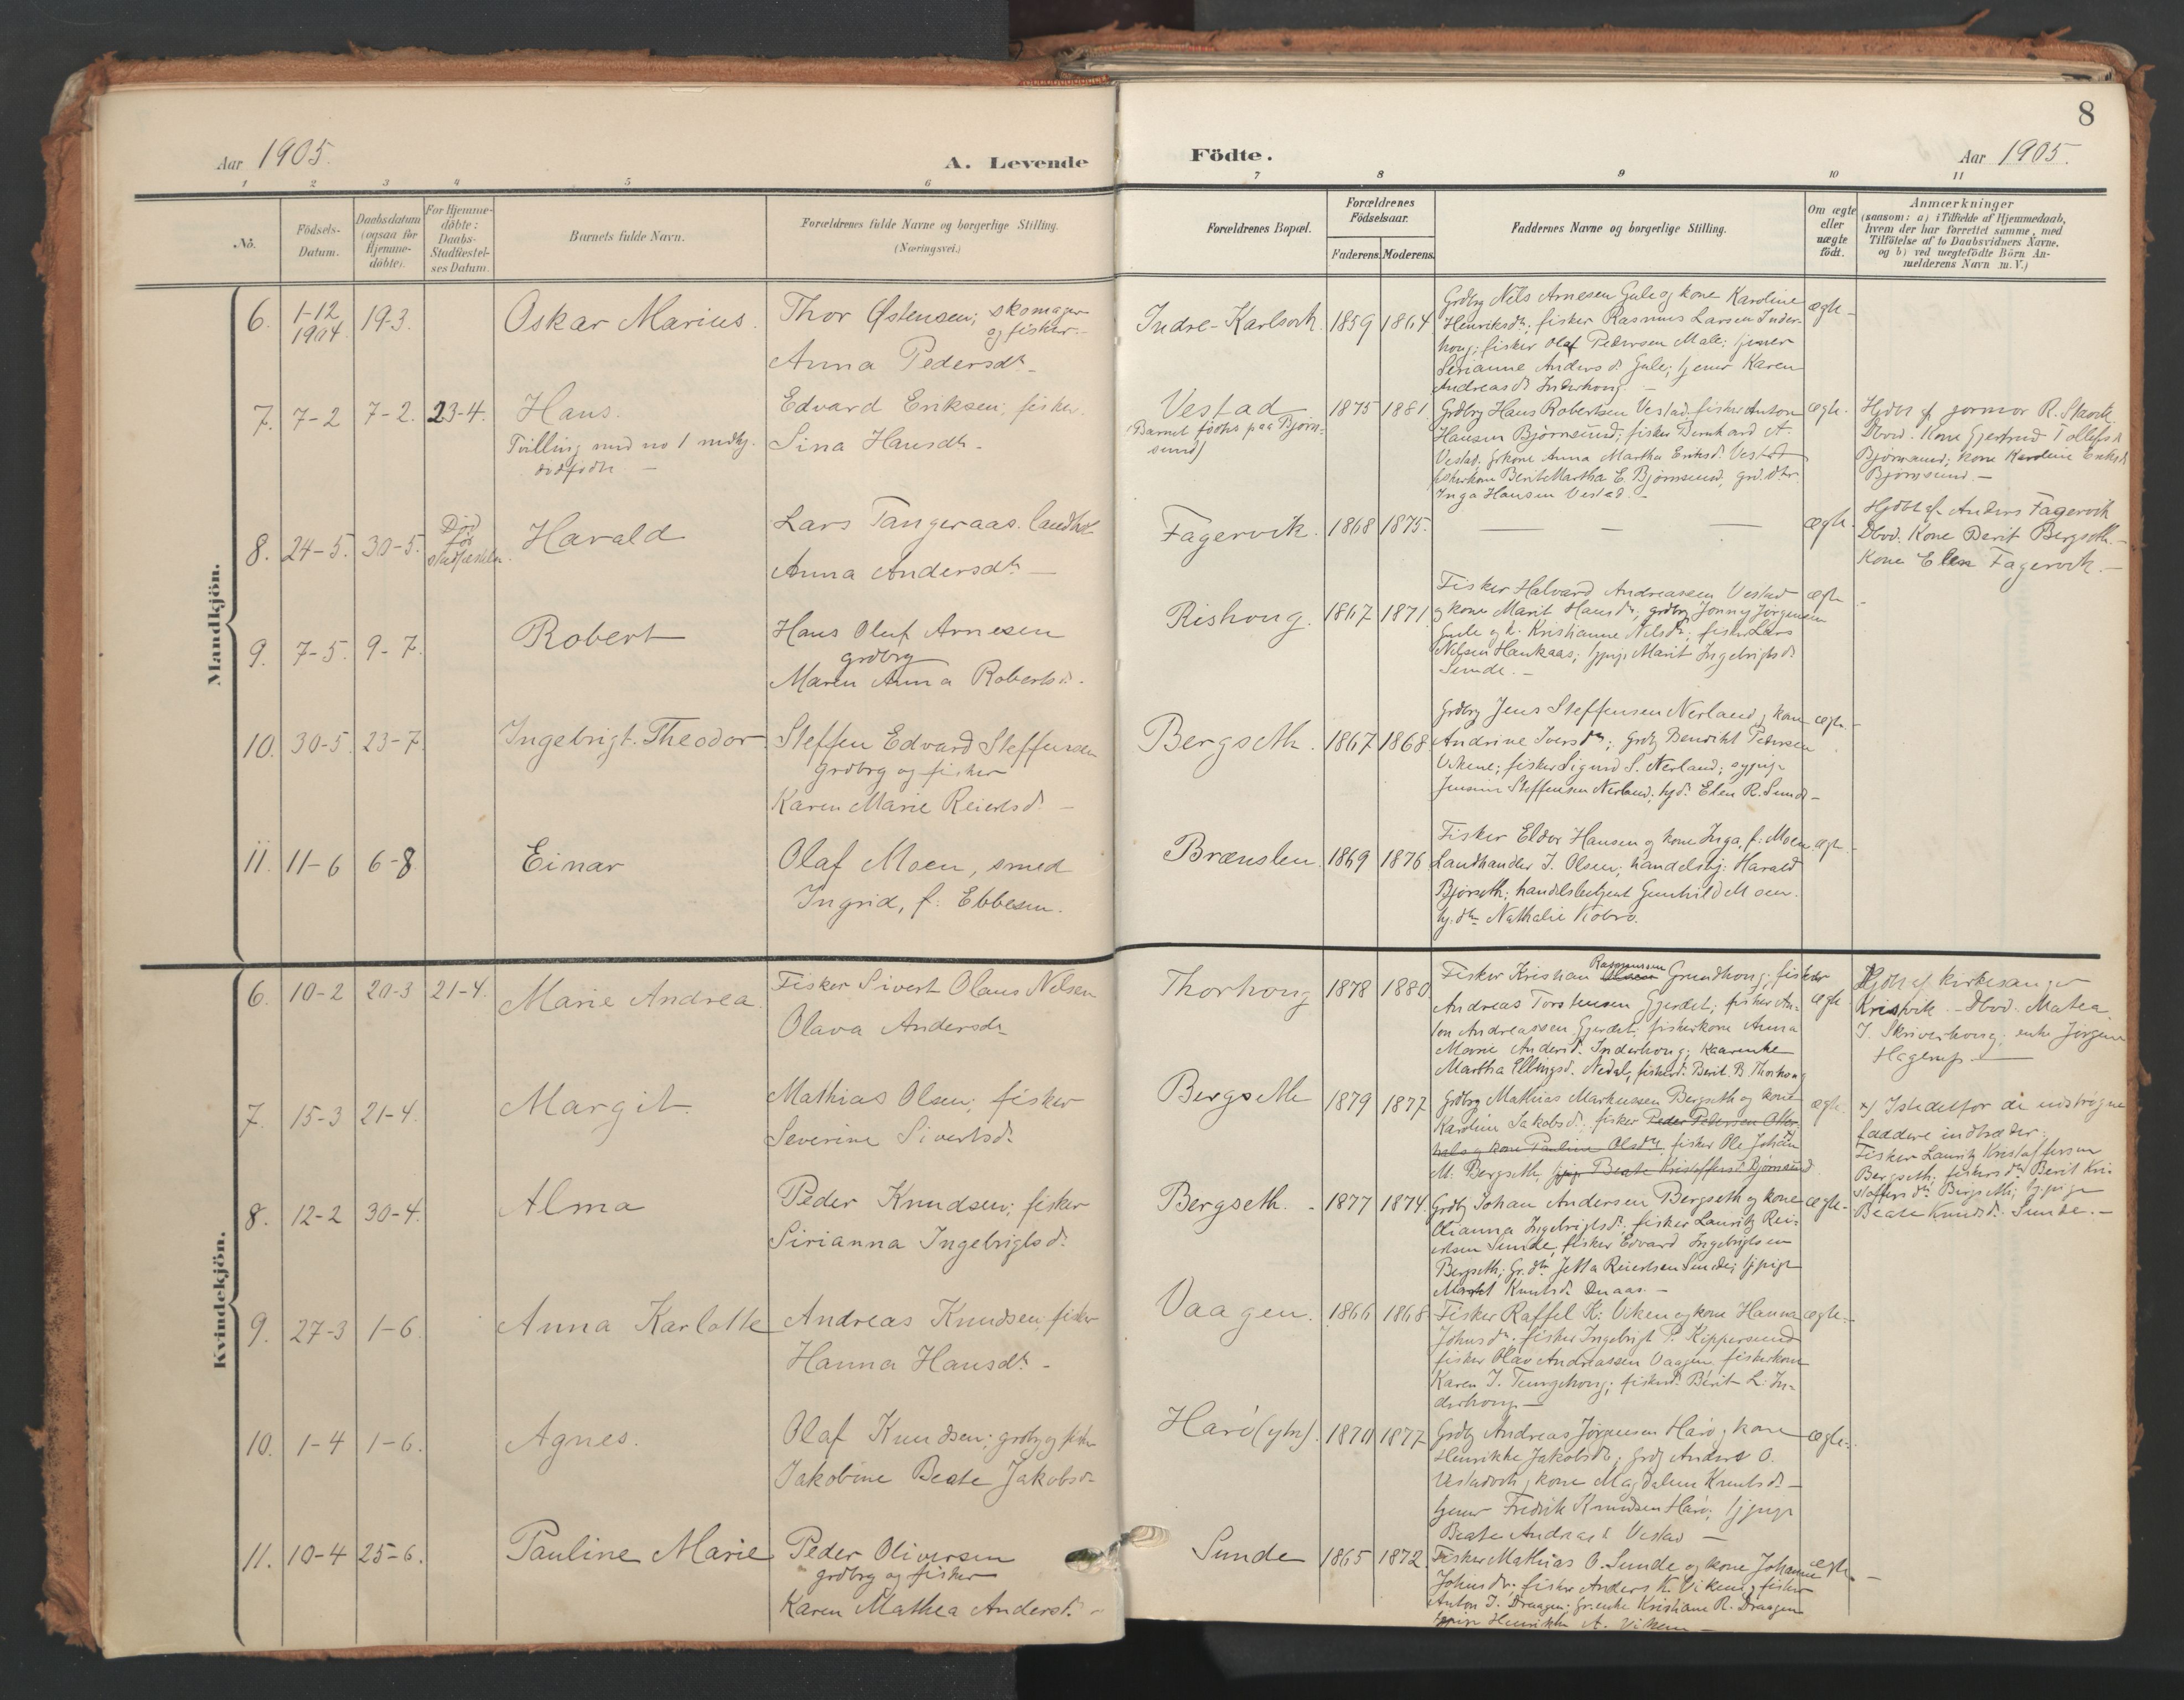 8
Aar 1905.
A. Levende
Födte.
Aar 1905.
1 2 3 4 5 6
7 8 9 10 11
No.
Födsels-Datum.
Daabsdatum (ogsaa for Hjemme-döbte).
For Hjemme-döbte: Daabs-Stadfæstel-ses Datum.
Barnets fulde Navn.
Forældrenes fulde Navne og borgerlige Stilling.
(Næringsvei.)
Forældrenes Bopæl.
Forældrenes Födselsaar.
Faderens. Moderens.
Faddernes Navne og borgerlige Stilling.
Om ægte eller uægte födt.
Anmærkninger
(saasom: a) i Tilfælde af Hjemmedaab,
hvem der har forrettet samme, med
Tilföielse af to Daabsvidners Navne.
og b) ved uægtefödte Börn An-
melderens Navn m. V.)
Mandkjön.
6. 1-12 1904 19-3. Oskar Marius. Thor Østensen; skomager og fisker.
Anna Pedersdr.
Indre-Karlsvik. 1859 1864
Grdbrg Nils Arnesen Gule og kone Karoline
Henriksdr; fisker Rasmus Larsen Inder-
houg; fisker Olaf Pedersen Male;
Serianne Andersd. Gule; Karen
Andreasd. Inderhoug.
ægte
7. 7-2 7-2. 23-4. Hans.
Tvilling med no 1 mdkj.
dødfødte
Edvard Eriksen; fisker.
Sina Hansdr.
Vestad
(Barnet födt paa Bjørn-
sund)
1875 1881.
Grdbrg Hans Robertsen Vestad. fisker Anton
Hansen Bjørnsund; fisker Bernhard A.
Vestad; kone Anna Martha Eriksd. Vestad
fiskerkone Berit Martha E. Bjørnsund, grd.dtr.
Inga Hansen Vestad.
ægte.
Hjdbt af jormor R. Stavik
Dbvd. Kone Gjertrud Tollefsd
Bjørnsund; kone Karoline Eriksd
Bjørnsund.
8. 24-5. 30-5. Död för stadfæstelsen. Harald
Lars Tangeraas. landhdl
Anna Andersdr.
Fagervik. 1868 1875.
ægte.
Hjdbt af Anders Fagervik
Dbvd. Kone Berit Bergseth.
Kone Elen Fagervik.
9. 7-5. 9-7. Robert
Hans Oluf Arnesen
grdbrg
Maren Anna Robertsd.
Rishoug. 1867 1871.
Fisker Halvard Andreassen Vestad
og kone Marit Hansdr; grdbrg Jonny Jørgensen
Gule og k. Kristianne Nilsdr; fisker Lars
Nilsen Haukaas; Marit Ingebrigtsd.
Sunde.
ægte
10. 30-5. 23-7. Ingebrigt Theodor.
Steffen Edvard Steffensen
grdbrg og fisker
Karen Marie Reiertsd.
Bergseth. 1867 1868
Grdbrg Jens Steffensen Nerland og kone
Andrine Iversdr; grdbrg Benedikt Petersen
Vikene; fisker Sigurd S. Nerland;
Steffensen Nerland; Elen R. Sunde
ægte.
11. 11-6 6-8 Einar
Olaf Moen, smed
Ingrid, f. Ebbesen.
Brænslen. 1869 1876
Fisker Eldor Hansen og kone Inga, f. Moen
Landhandler J. Olsen; handelsbj. Harald
Bjørseth; handelsbetjent Gunhild Moen.
Nathalie Viobro.
ægte
Kvindekjön.
6. 10-2 20-3 21-4. Marie Andrea.
Fisker Sivert Olaus Nelsen
Olava Andersdr
Thorhoug 1878 1880
Fisker Kristian Rasmussen Grundhoug; fisker
Andreas Torstensen Gjerdet; fisker An-
ton Andreassen Gjerdet; fiskerkone Anna
Marie Andersd. Inderhoug;
Martha Ellingsd. Nedal, fiskerd. Berit B. Thorhoug
ægte
Hjdbt af kirkesanger
Kristvik. Dbvd. Matea
J. Skriverhoug; enke Jørgine
Hagerup.
7. 15-3 21-4. Margit.
Mathias Olsen; fisker
Severine Sivertsd.
Bergseth 1879 1877
Grdbrg Mathias Markussen Bergseth og kone
Karoline Jakobsd.; fisker Peder Petersen Otter-
hals og kone Pauline Olsdr, fisker Ole Johan
M. Bergseth, Beate Kristoffersd. Bjørnsund.
ægte.
x) Istedetfor de udstrøgne
faddere indtræder:
Fisker Laurits Kristoffersen
Bergseth; fiskersdr Berit Kri-
stoffersdr Bergseth;
Beate Knudsd. Sunde.
8. 12-2 30-4. Alma
Peder Knudsen; fisker
Sirianna Ingebrigtsd.
Bergseth. 1877 1874.
Grdbrg Johan Andersen Bergseth og kone
Olianna Ingebrigtsd.; fisker Laurits Rei-
ertsen Sunde, fisker Edvard Ingebrigtsen
Bergseth; Gr.dtr Jetta Reiertsen Sunde;
Marit Knutsd. Duaas.
ægte.
9. 27-3 1-6. Anna Karlotte
Andreas Knudsen, fisker
Hanna Hansdr.
Vaagen. 1866 1868
Fisker Raffel K. Viken og kone Hanna
Johnsdr, fisker Ingebrigt P. Kippersund
fisker Olav Andreassen Vaagen, fiskerkone
Karen J. Tungehoug; fiskerd. Berit L. In-
derhoug.
ægte.
10. 1-4 1-6. Agnes.
Olaf Knudsen; grdbrg og fisker
Jakobine Beate Jakobsd.
Harö (ytre). 1870 1877
Grdbrg Andreas Jørgensen Harö og kone
Henrikke Jakobsdr; grdbrg Anders O.
Vestadvik og kone Magdalene Knutsd.
Fredrik Knudsen Harö;
Beate Andreasd. Vestad
ægte.
11. 10-4 25-6. Pauline Marie
Peder Oliversen
grdbrg og fisker
Karen Mathea Andersd.
Sunde 1865 1872.
Fisker Mathias O. Sunde og kone Johanne
Johnsdr; fisker Anders K. Viken; fisker
Anton J. Draagen; Gr.enke Kristiane R. Draagen
Henrikke A. Viken
ægte.